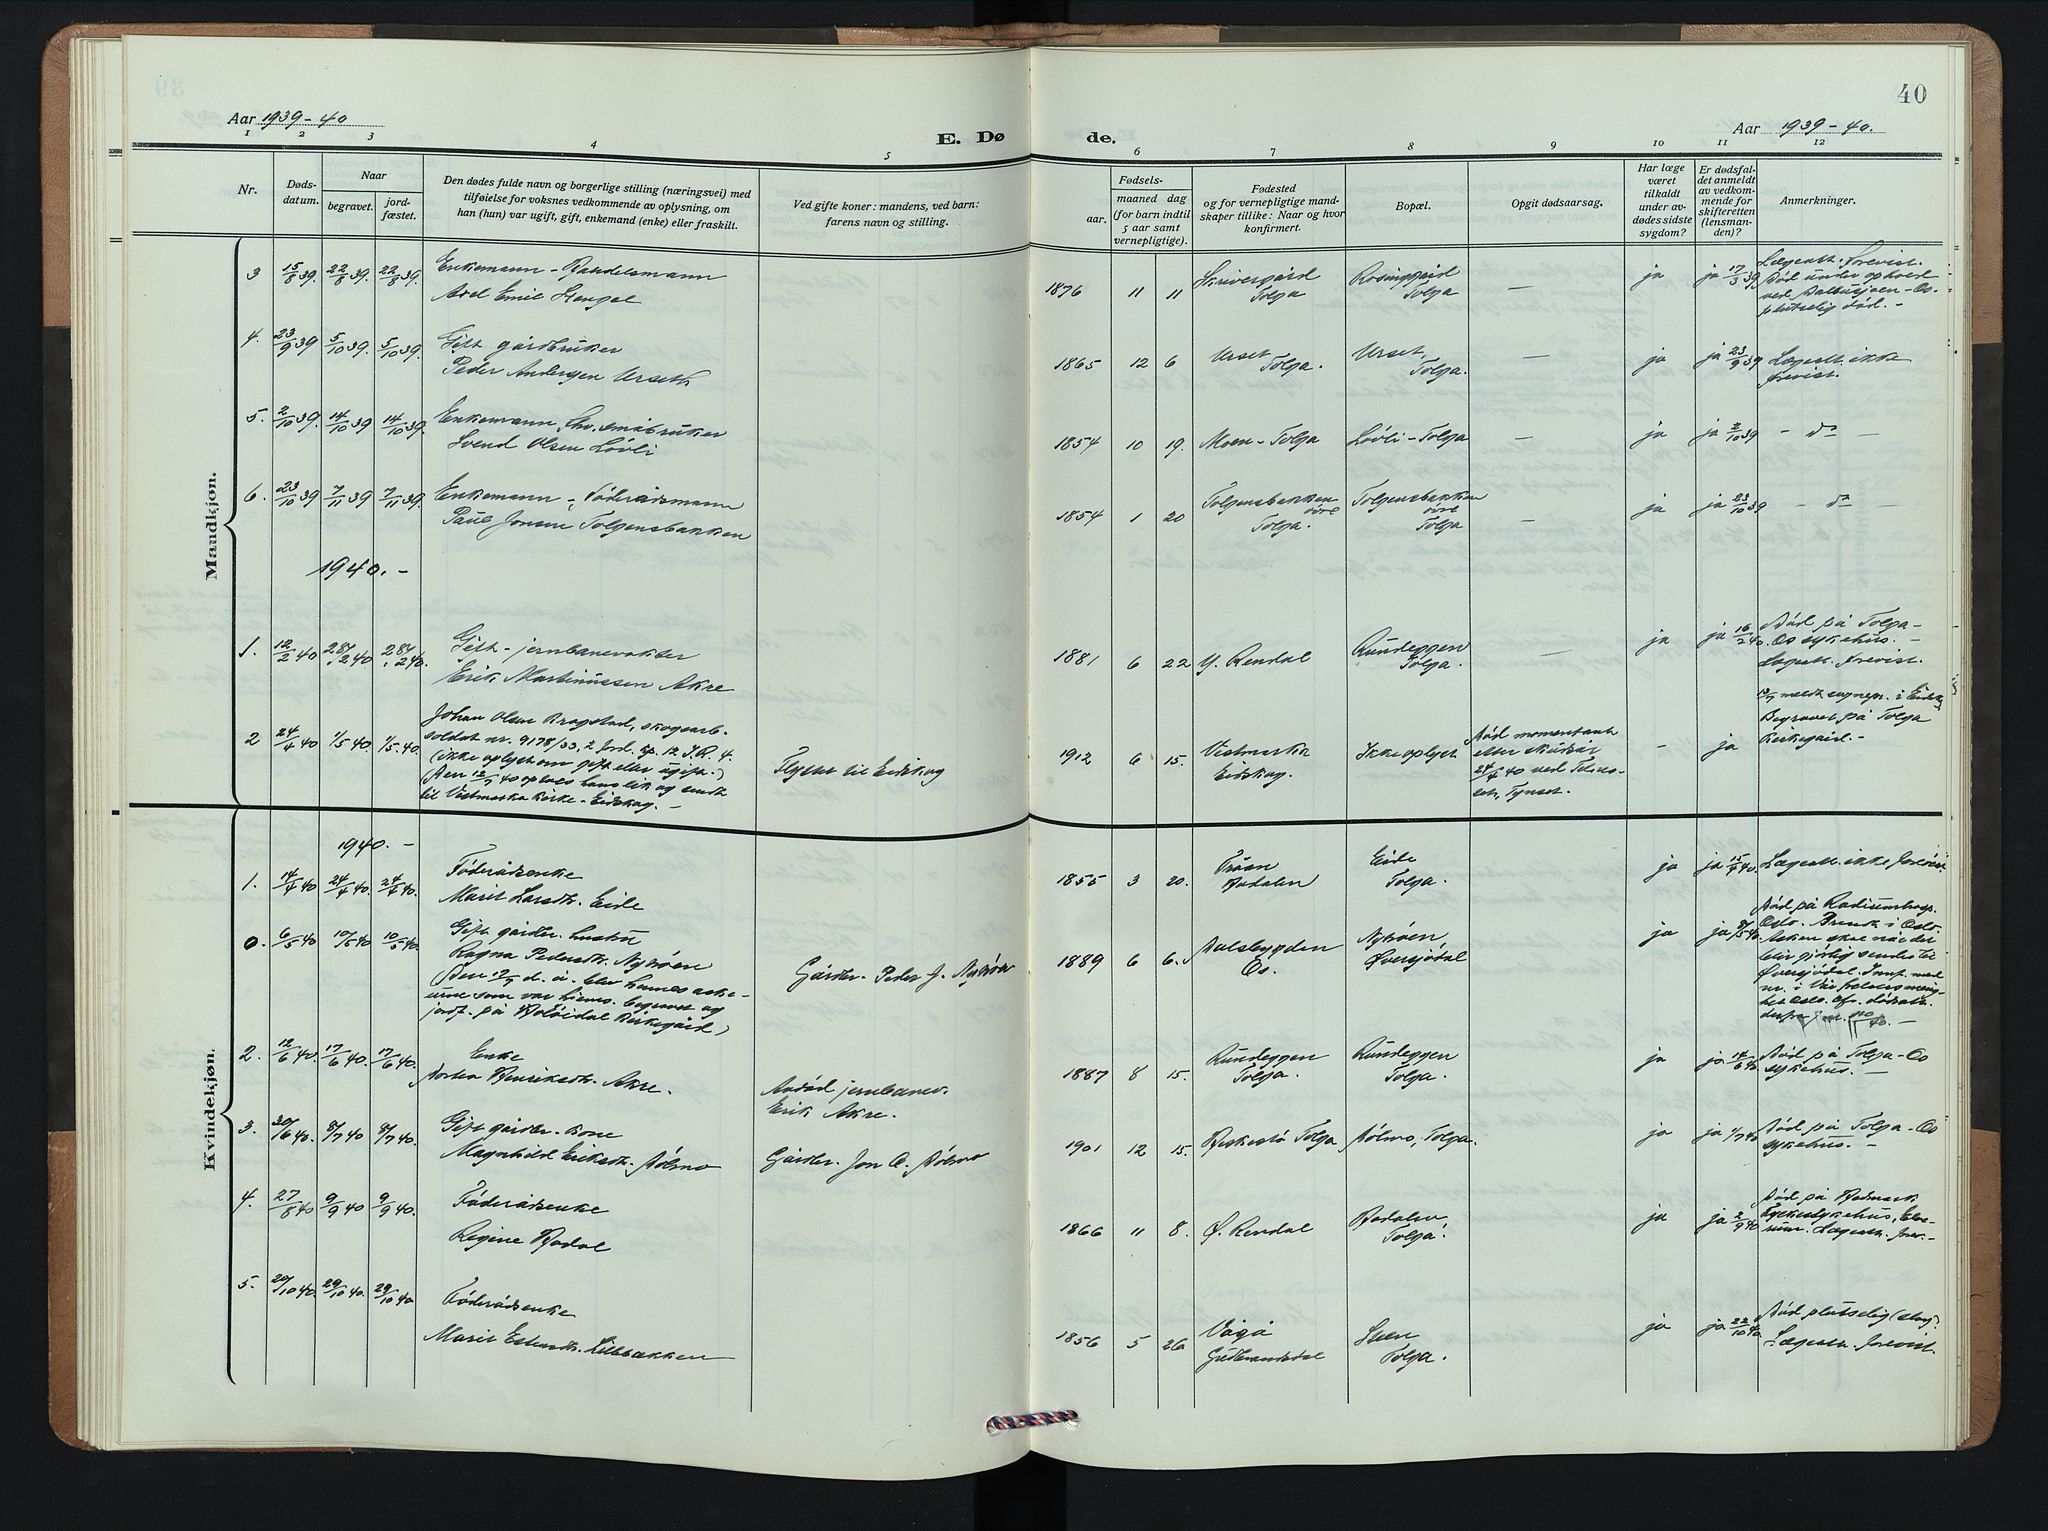 40
Aar 1939-40
E. Dø
de.
Aar 1939-40.
1 2 3 4 5 6 7 8 9 10 11 12
Nr.
Døds-
datum.
Naar
begravet.
jord-
fæstet.
Den dødes fulde navn og borgerlige stilling (næringsvei) med
tilføielse for voksnes vedkommende av oplysning, om
han (hun) var ugift, gift, enkemand (enke) eller fraskilt.
Ved gifte koner: mandens, ved barn:
farens navn og stilling.
Fødsels-
aar.
maaned dag
(for barn indtil
5 aar samt
vernepligtige).
Fødested
og for vernepligtige mand-
skaper tillike: Naar og hvor
konfirmert.
Bopæl.
Opgit dødsaarsag.
Har læge
været
tilkaldt
under av-
dødes sidste
sygdom?
Er dødsfal-
det anmeldt
av vedkom-
mende for
skifteretten
(lensman-
den)?
Anmerkninger.
Mandkjøn.
3 15/8 39 22/8 39. 22/8 39.
Enkemann - Handelsmann
Axel Emil Stengel
1876 11 11
Tolga
Tolga
—
ja ja
Død under ophold
plutselig død. -
4. 23/9 39 5/10 39. 5/10 39.
Gift gårdbruker
Peder Andersen Urseth
1865 12 6
Urset, Tolga.
Urset, Tolga.
—
ja ja 23/9 39
Lægeatt. ikke
forevist.
5. 2/10 39. 14/10 39 14/10 39.
Enkemann, fhv. småbruker
Svend Olsen Løvli
1854 10 19.
Moen - Tolga
Løvli - Tolga
—
ja ja 2/10 39
- do -
6. 23/10 39 7/11 39 7/11 39.
Enkemann - Føderådsmann
Paul Jonsen Tolgensbakken
1854 1 20
Tolgensbakken
øvre
Tolga.
Tolgensbakken
øvre
Tolga
—
ja ja 23/10 39
- do -
1940. -
1. 12/2 40 28/2 40 28/2 40.
Gift - jernbanevokter
Erik Martinussen Akre
1881 6 22
Y. Rendal
Rundeggen
Tolga.
—
ja ja 16/2 40.
Død på Tolga-
Os sykehus. -
Lægeatt. forevist.
2 24/4 40 1/5 40. 1/5 40.
Johan Olsen Bragstad, skogsarb.
soldat nr. 9178/33, 2 ford. kp. 12 I.R. 4.
(ikke oplyst om gift eller ugift.)
(Den 12/7 40 optoes hans lik og sendt
til Vestmarka kirke - Eidskog. -
Flyttet til Eidskog
1912 6 15.
Vestmarka
Eidskog.
Ikke oplyst
Død momentant
etter skuddsår
24/4 40 ved
Tynset.
- ja
meldt sognepr. i Eidskog
Begravet på Tolga
kirkegård. -
Kvindekjøn.
1940. -
1. 14/4 40 24/4 40. 24/4 40.
Føderådsenke
Marit Larsdtr. Eide
1855 3 20.
Trøan
Hodalen
Eide
Tolga.
ja ja 15/4 40.
Lægeatt. ikke forevist
0. 6/5 40 10/5 40. 10/5 40.
Gift gårdbr. hustru
Ragna Pedersdtr. Nytrøen
(Den d. å. blev hennes aske-
urne som var hjems. begravet og
jordf. på Holøidal kirkegård)
Gårdbr. Peder J. Nytrøen
1889 6 6.
Dalsbygden
Os.
Nytrøen
Øversjødal
ja ja 8/5 40.
Død på Radiumhosp.
Oslo. Brendt i Oslo.
Asken skal når det
blir gjørlig sendes til
Øversjødal. Innf. med
nr. i Vår frelsers menig-
het Oslo.
2. 12/6 40. 17/6 40. 17/6 40.
Enke
Marta Henriksdtr. Akre.
Avdød jernbanev.
Erik Akre.
1887 8 15.
Rundeggen
Tolga.
Rundeggen
Tolga.
ja ja 14/6 40
Død på Tolga-Os
sykehus. -
3. 30/6 40. 8/7 40 8/7 40.
Gift gårdbr. kone
Magnhild Eriksdtr. Dølmo
Gårdbr. Jon O. Dølmo
1901 12 15.
Tolga
Dølmo, Tolga.
ja ja 1/7 40
Død på Tolga-Os
sykehus. -
4. 27/8 40 9/9 40 9/9 40.
Føderådsenke
Regine Hodal
1866 11 8.
Ø. Rendal
Hodalen,
Tolga.
ja ja 2/9 40
Død på Hedmark
Fylkessykehus, Elve-
rum. Lægeattr. forev. -
5. 20/10 40. 29/10 40. 29/10 40
Føderådsenke
Marit Estensdtr. Lillebakken
1856 5 26
Vågå
Gudbrandsdal
Steen
Tolga.
ja ja 22/10 40
Død plutselig (slag).
Lægeattr. forevist.